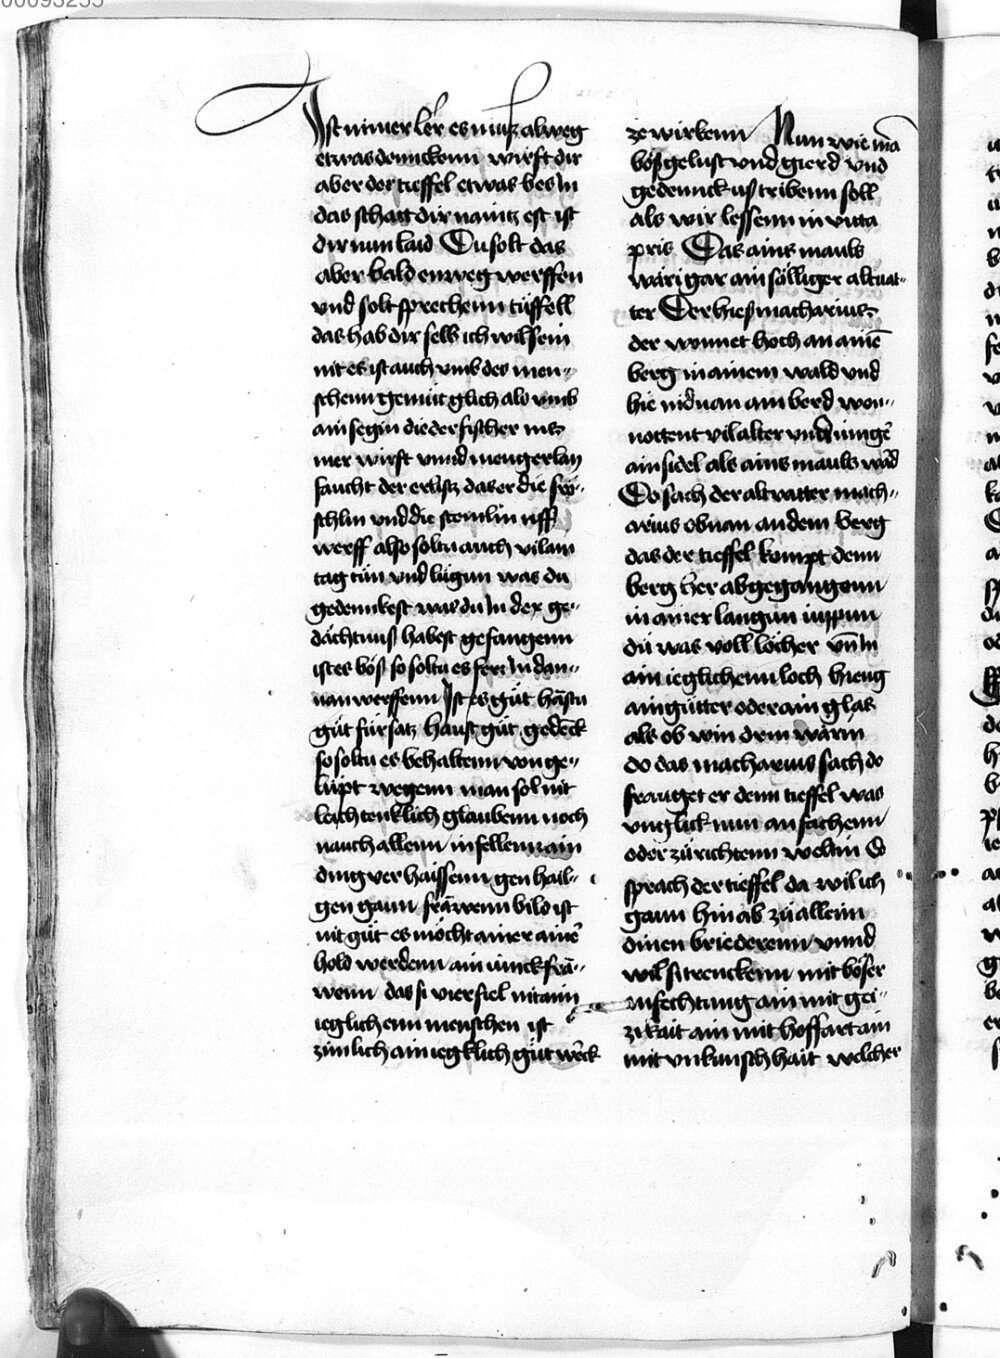 00093255
Ist nimer ler es muͦß alweg
etwas dennckenn wirft dir
aber der tieffel etwas bes In
das schatt dir naintz est ist
dir nun laid Du solt das
aber bald enweg werffen
vnd solt sprechenn tüffell
das hab dir selb ich wil sein
nit es ist auch vmb des men-
schenn gemüt glich als vmb
ain segin die der fischer ins
mer wirft vnnd
facht der erlist das er die frö-
schlin vnd die stainlin uff
werff also soltu auch vilam
tag tuͦn vnd luͦgun was du
gedennkest was du In der ge-
dächtnuß habest gefangenn
ist es böß so soltu es ferr In dan-
nan werffenn Ist es guͦt hāstu
guͦt fürsatz haust guͦt gedēck
so soltu es behaltenn von ge-
lüpt wegenn man sol nit
leichtenklich glaubenn noch
nauch allenn infellenn ain
ding verhaissenn gen hail-
gen gann frāwenn bild ist
nit guͦt es möcht ainer ainē
hold werdenn ain junckfrā-
wenn das si vierfiel nit aim
ieglichenn menschen ist
zimlich ain iegklich guͦt wēck
ze wirkenn Nun wie mā
bös gelust vnd gierd vnd
gedennck uß tribenn soll
als wir lessenn in vitta
pris Das ains mauls
wār gar ain sälliger altuat-
ter Der hieß macharius
der wonnet hoch an ainē
berg in ainem wald vnd
hie nidnan am berd won-
nottent vil alter vnd iungē
ainsidel als ains mauls ward
Do sach der altvatter mach-
arius obnan an dem berg
das der tieffel kompt denn
berg her ab gegangenn
in ainer langun iuppun
dü was voll löcher vn̄ In
ain ieglichenn loch hieng
ain gütter oder ain glas
als ob win dem wärin
do das macharius sach do
frauget er denn tieffel was
vnglick nun an fachenn
oder zuͦrichtenn weltin Do
sprach der tieffel da wil ich
gann hin ab zuͦ allenn
dinen briederenn vnnd
wil si trenckenn mit böser
anfechtung ain mit gei-
zikait ain mit hoffart ain
mit vnkinschhait welcher